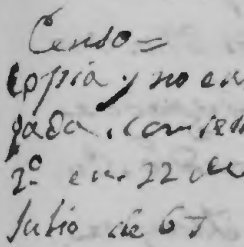 Censo=
copia y no en
gada, con sell
2º en 22 de
Julio de 67